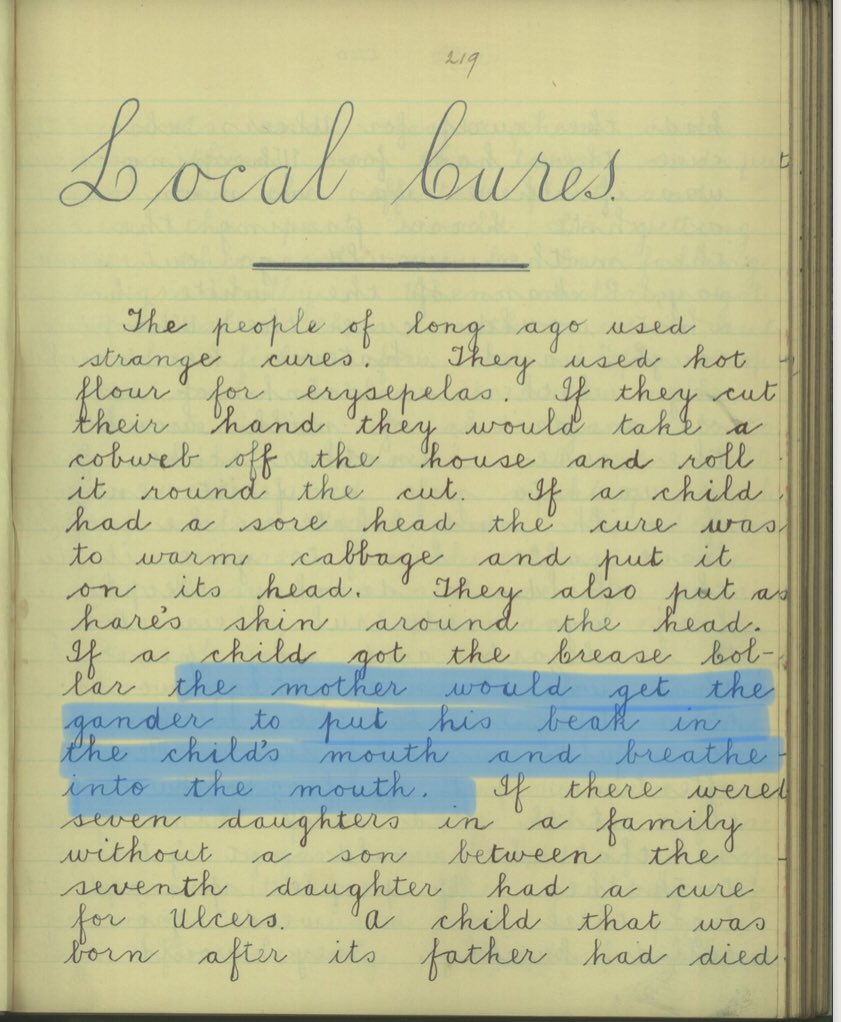 219
Local Cures.
The people of long ago used
strange cures. They used hot
flour for erysepelas. If they cut
their hand they would take a
cobweb off the house and roll
it round the cut. If a child
had a sore head the cure was
to warm cabbage and put it
on its head. They also put a
hare's skin around the head.
If a child got the Crease Col-
lar the mother would get the
gander to put his beak in
the child's mouth and breathe
into the mouth. If there were
seven daughters in a family
without a son between the
seventh daughter had a cure
for Ulcers. A child that was
born after its father had died